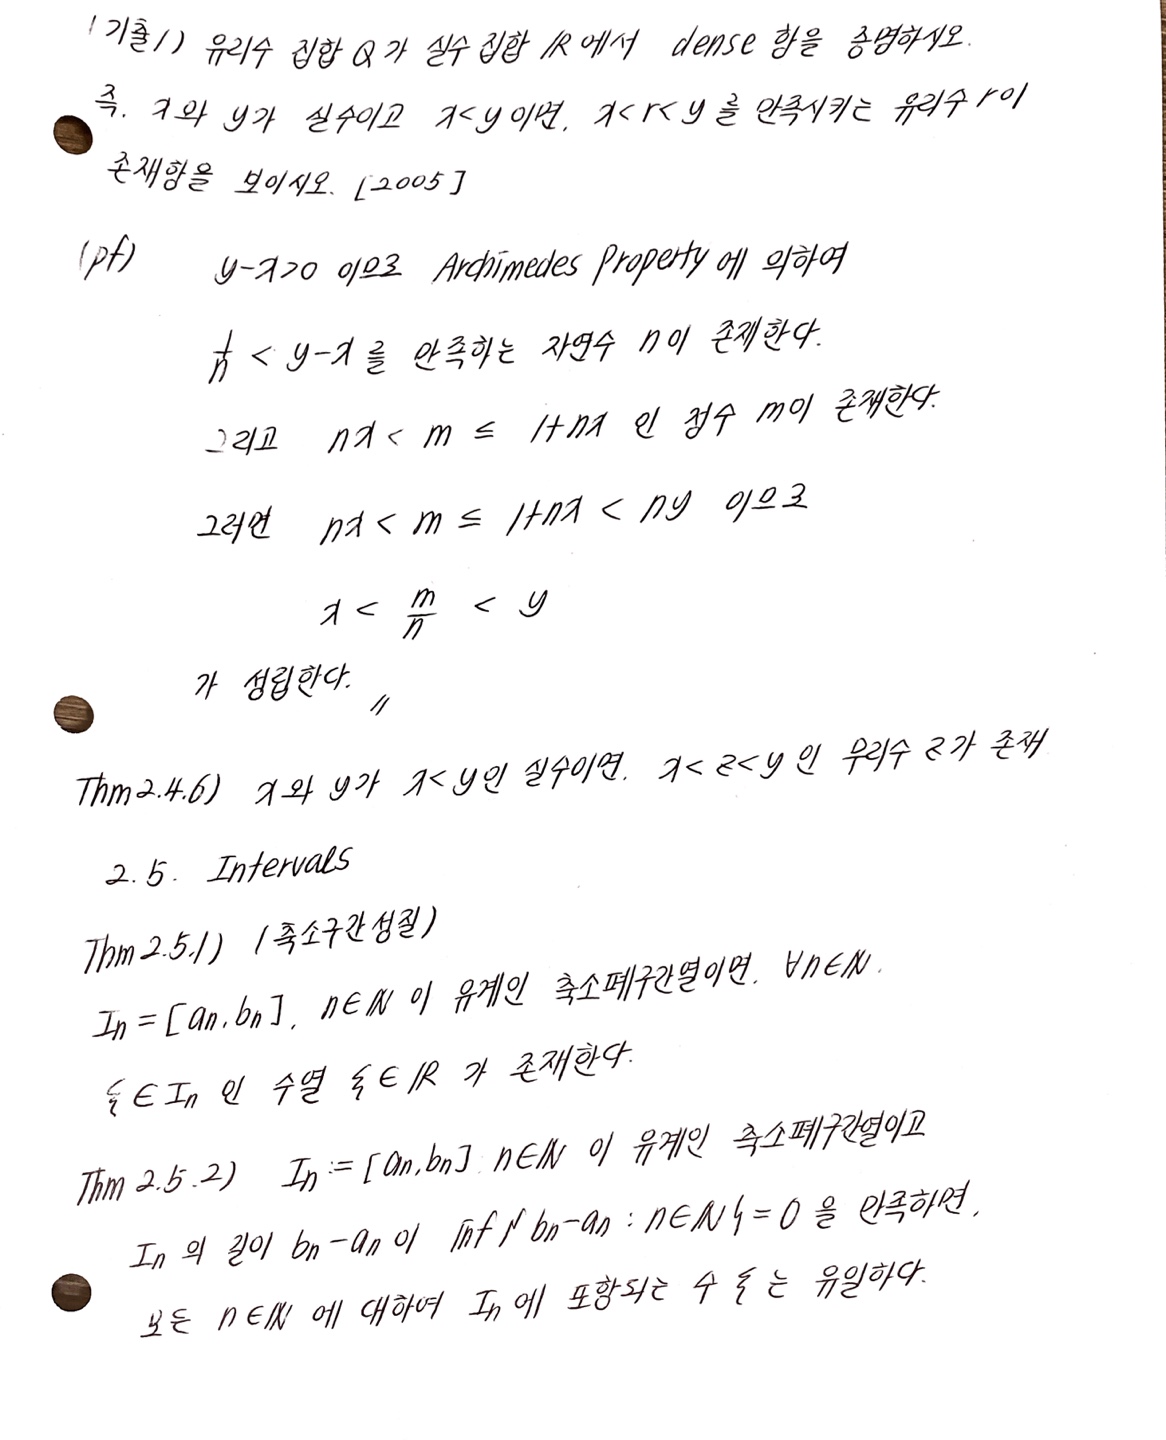 (기출1) 유리수 집합 Q가 실수 집합 ℝ에서 dense 함을 증명하시오.
즉. x와 y가 실수이고 x<y이면, x<r<y를 만족시키는 유리수 r이
존재함을 보이시오. [2005]
(pf) y-x>0 이므로 Archimedes Property에 의하여
1/n < y-x를 만족하는 자연수 n이 존재한다.
그리고 nx < m ≤ 1+nx 인 정수 m이 존재한다.
그러면 nx < m ≤ 1+nx < ny 이므로
x < m/n < y
가 성립한다. 〃
Thm 2.4.6) x와 y가 x<y인 실수이면. x<z<y인 무리수 z가 존재
2.5. Intervals
Thm 2.5.1) (축소구간성질)
In = [an, bn], n∈ℕ 이 유계인 축소폐구간열이면, ∀n∈ℕ.
ξ∈In 인 수열 ξ∈ℝ 가 존재한다.
Thm 2.5.2) In := [an, bn] n∈ℕ 이 유계인 축소폐구간열이고
In의 길이 bn-an이 inf{bn-an : n∈ℕ}=0 을 만족하면,
모든 n∈ℕ에 대하여 In에 포함되는 수 ξ는 유일하다.